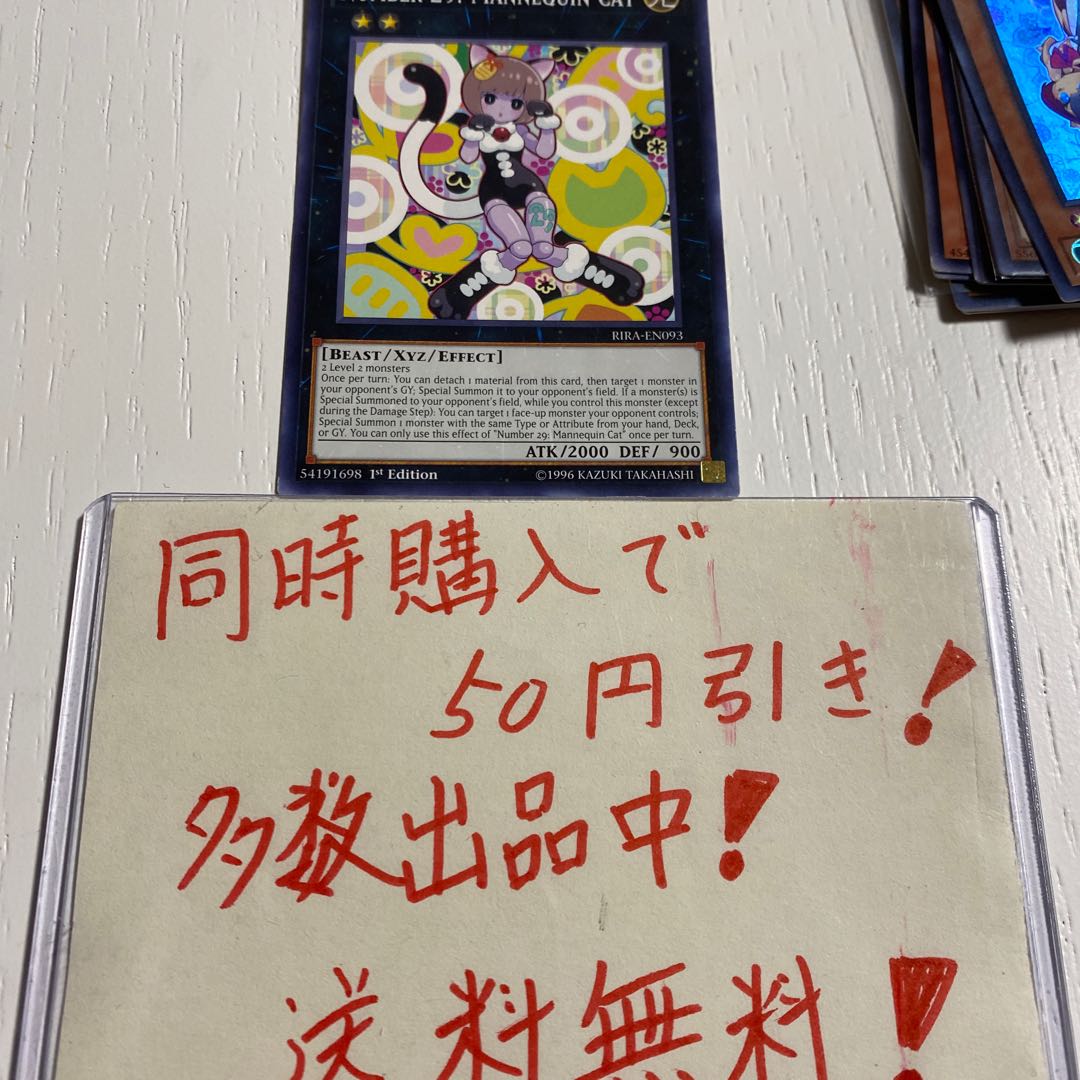 NUMBER 29: MANNEQUIN CAT
光
29
RIRA-EN093
[BEAST/XYZ/EFFECT]
2 Level 2 monsters
Once per turn: You can detach 1 material from this card, then target 1 monster in
your opponent's GY; Special Summon it to your opponent's field. If a monster(s) is
Special Summoned to your opponent's field, while you control this monster (except
during the Damage Step): You can target 1 face-up monster your opponent controls;
Special Summon 1 monster with the same Type or Attribute from your hand, Deck,
or GY. You can only use this effect of "Number 29: Mannequin Cat" once per turn.
ATK/2000 DEF/ 900
54191698 1st Edition ©1996 KAZUKI TAKAHASHI
同時購入で
50円引き!
多数出品中!
送料無料!